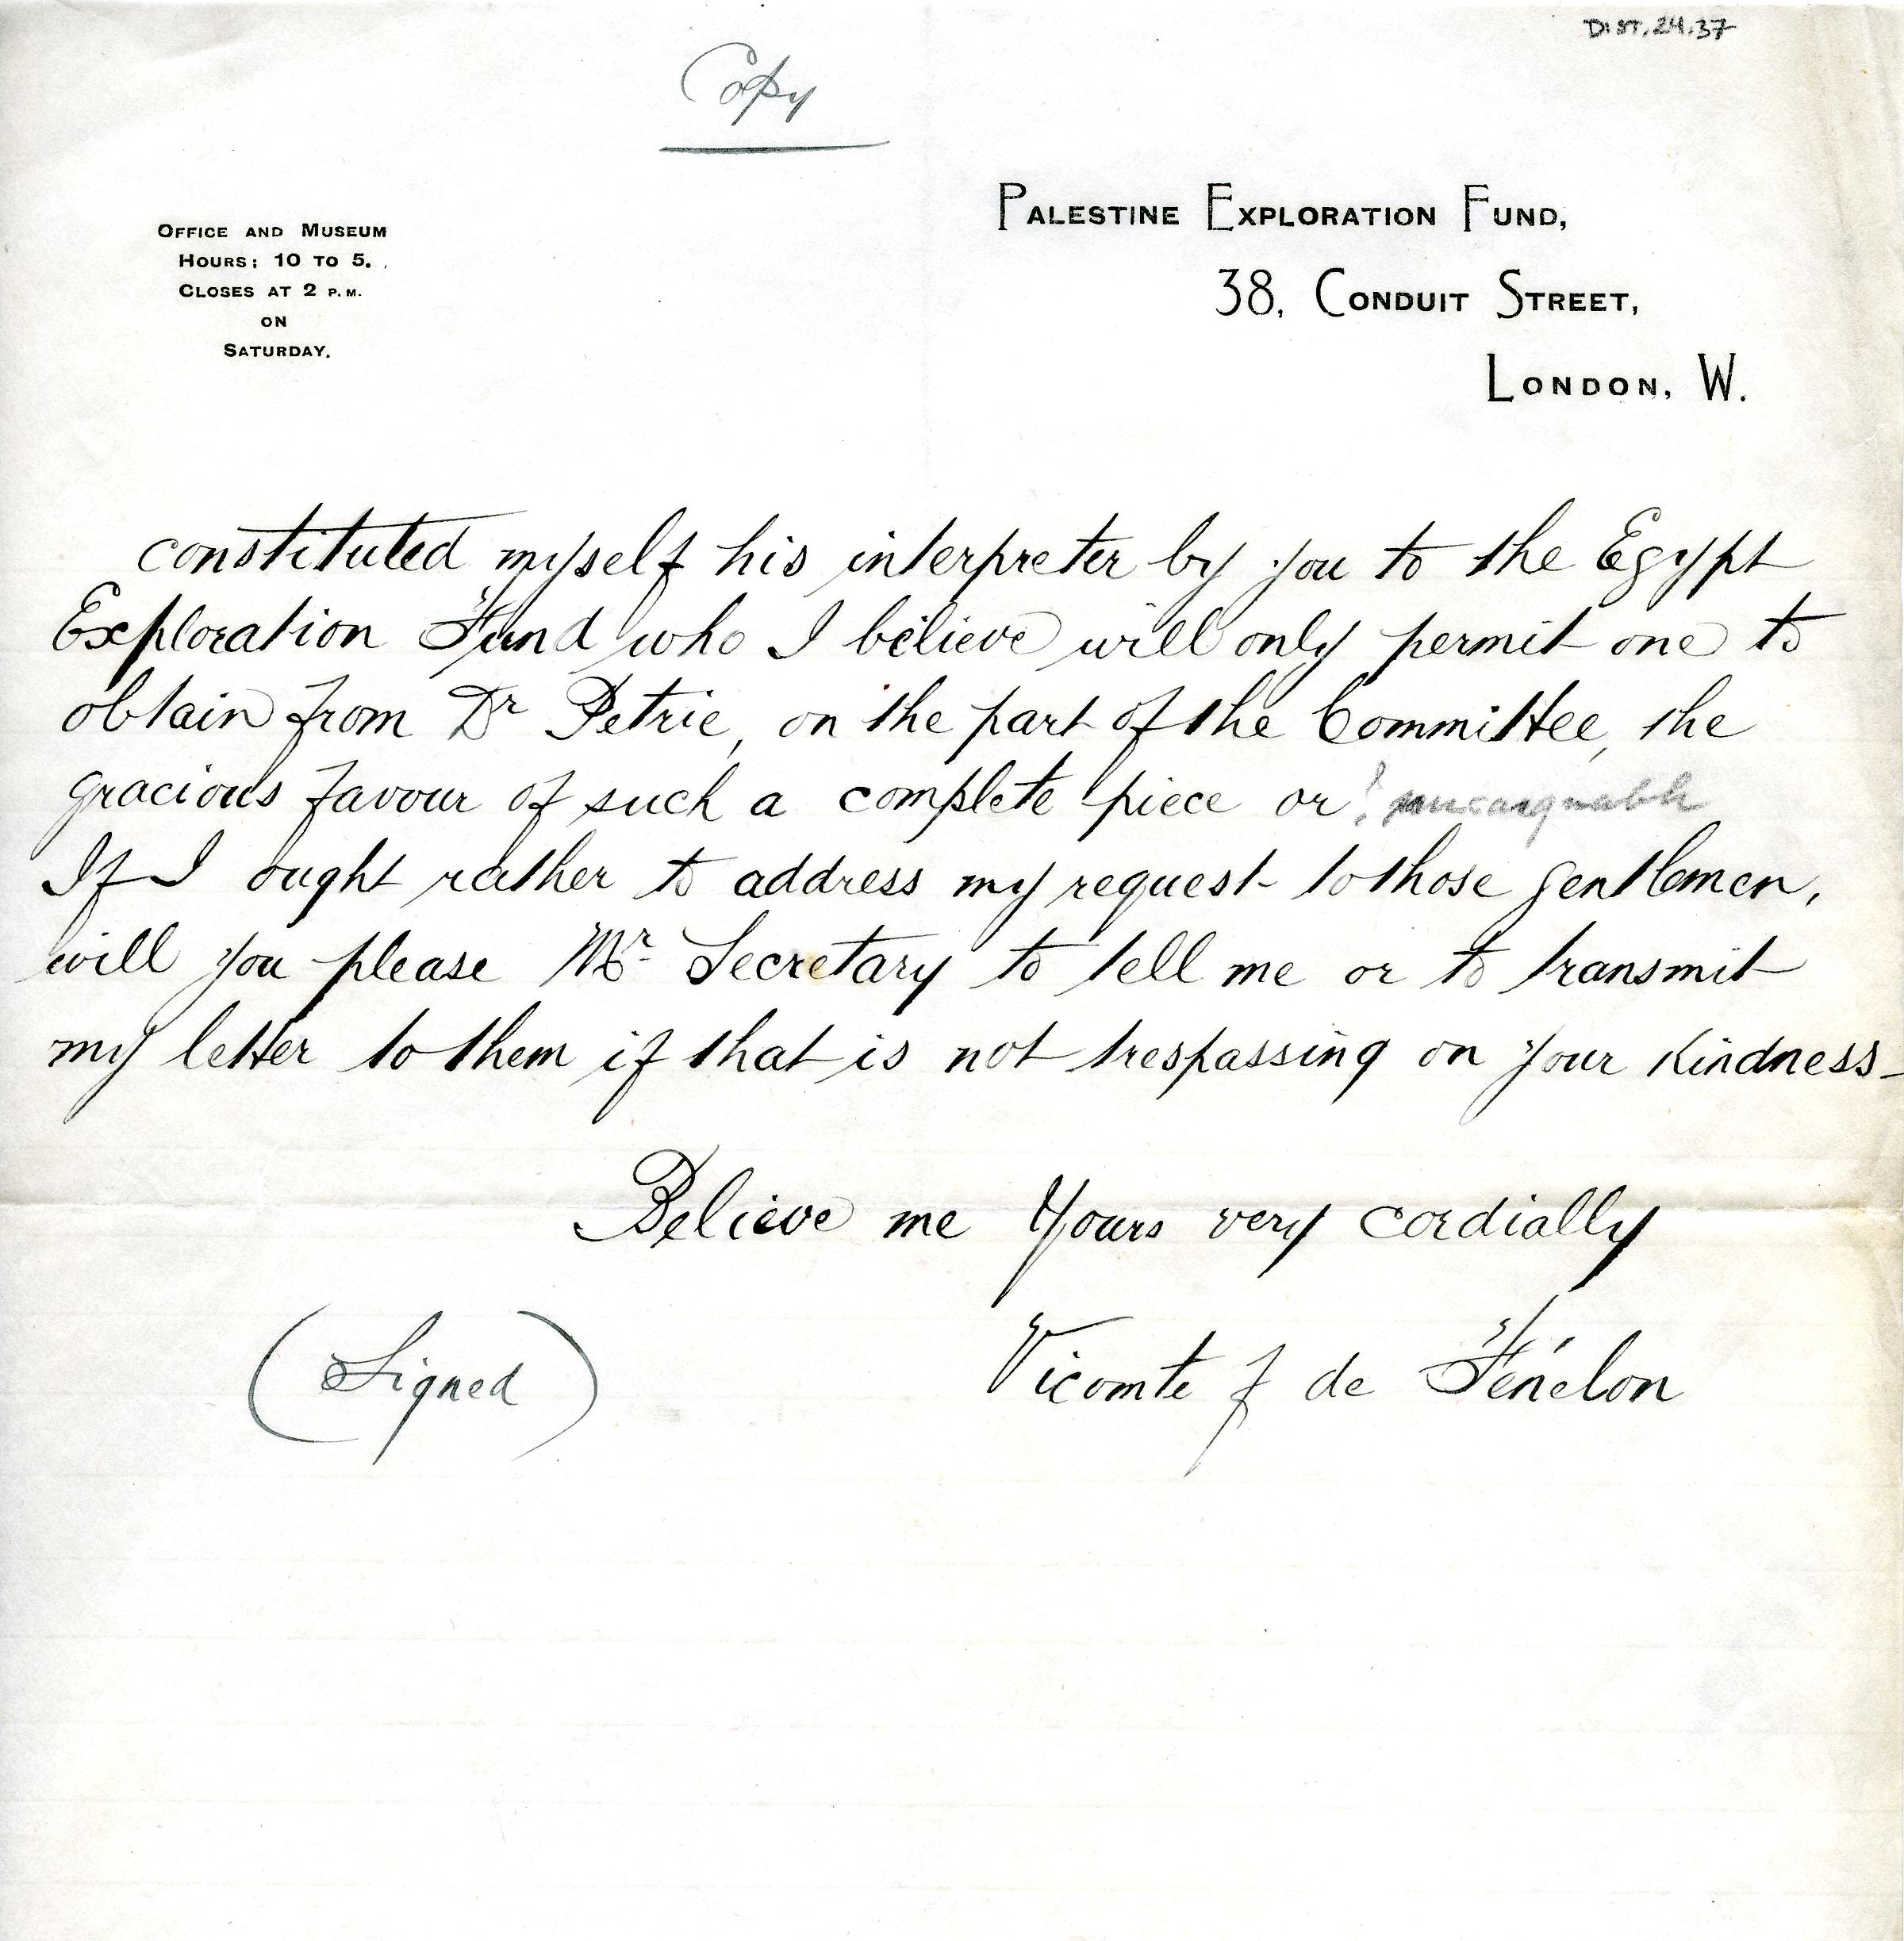 DIST.24.37
Copy
OFFICE AND MUSEUM
HOURS: 10 TO 5.
CLOSES AT 2 P.M.
ON
SATURDAY.
PALESTINE EXPLORATION FUND,
38, CONDUIT STREET,
LONDON, W.
constituted myself his interpreter by you to the Egypt
Exploration Fund who I believe will only permit one to
obtain from Dr Petrie, on the part of the Committee, the
gracious favour of such a complete piece or ?
If I ought rather to address my request to those gentlemen,
will you please Mr Secretary to tell me or to transmit
my letter to them if that is not trespassing on your kindness-
Believe me Yours very cordially
(Signed) Vicomte f de Fénélon